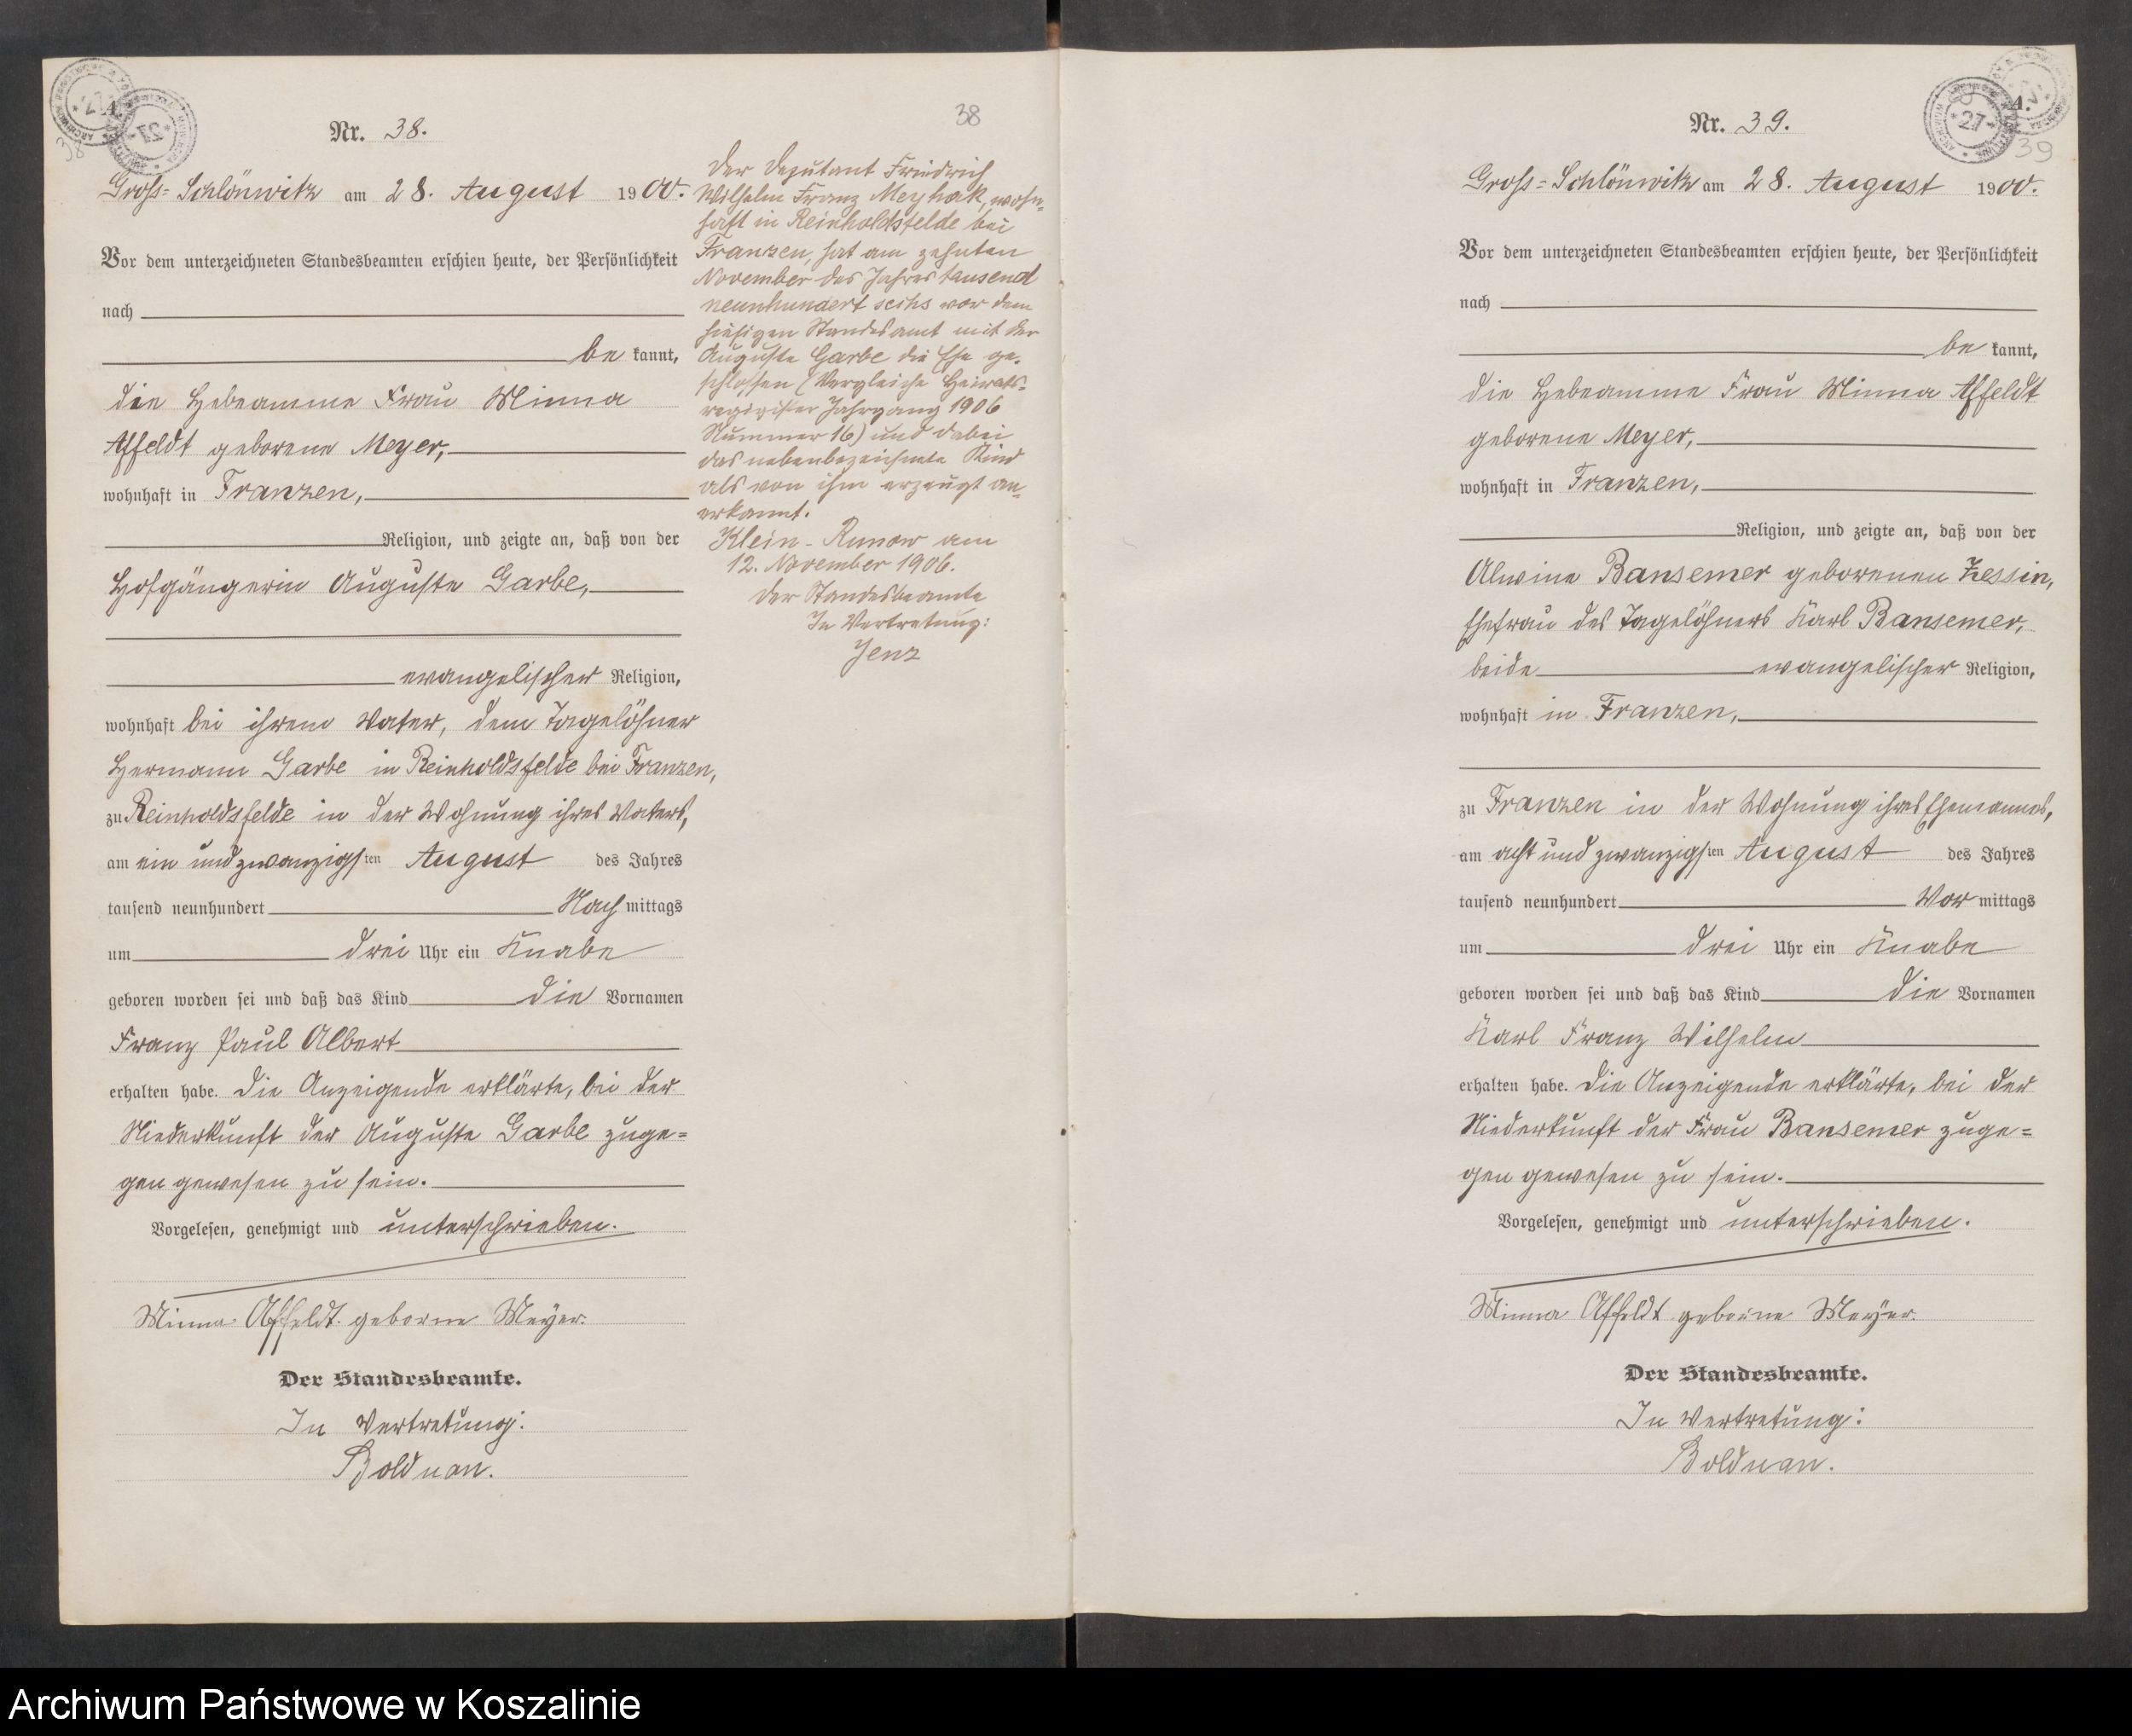 A.
38
Nr. 38.
38
Groß-Schlönwitz am 28. August 1900.
Vor dem unterzeichneten Standesbeamten erschien heute, der Persönlichkeit
nach
be kannt,
die Hebeamme Frau Minna
Affeldt geborene Meyer,
wohnhaft in Franzen,
Religion, und zeigte an, daß von der
Hofgängerin Auguste Garbe,
evangelischer Religion,
wohnhaft bei ihrem Vater, dem Tagelöhner
Hermann Garbe in Reinholdsfelde bei Franzen,
zu Reinholdsfelde in der Wohnung ihres Vaters,
am ein und zwanzigsten August des Jahres
tausend neunhundert Nach mittags
um drei Uhr ein Knabe
geboren worden sei und daß das Kind die Vornamen
Franz Paul Albert
erhalten habe. Die Anzeigende erklärte, bei der
Niederkunft der Auguste Garbe zuge=
gen gewesen zu sein.
Vorgelesen, genehmigt und unterschrieben.
Minna Affeldt geborne Meyer.
Der Standesbeamte.
In Vertretung:
Bolduan.
Der Deputant Friedrich
Wilhelm Franz Meyhak, wohn-
haft in Reinholdsfelde bei
Franzen, hat am zehnten
November des Jahres tausend
neunhundert sechs vor dem
hiesigen Standesamt mit der
Auguste Garbe die Ehe ge-
schlossen (Vergleiche Heirats-
register Jahrgang 1906
Nummer 16) und dabei
das nebenbezeichnete Kind
als von ihm erzeugt an-
erkannt.
Klein-Runow am
12. November 1906.
Der Standesbeamte
In Vertretung:
Jenz
A.
39
Nr. 39.
Groß-Schlönwitz am 28. August 1900.
Vor dem unterzeichneten Standesbeamten erschien heute, der Persönlichkeit
nach
be kannt,
die Hebeamme Frau Minna Affeldt
geborene Meyer,
wohnhaft in Franzen,
Religion, und zeigte an, daß von der
Alwine Bansemer geborenen Zessin,
Ehefrau des Tagelöhners Karl Bansemer,
beide evangelischer Religion,
wohnhaft in Franzen,
zu Franzen in der Wohnung ihres Ehemannes,
am acht und zwanzigsten August des Jahres
tausend neunhundert Vor mittags
um drei Uhr ein Knabe
geboren worden sei und daß das Kind die Vornamen
Karl Franz Wilhelm
erhalten habe. Die Anzeigende erklärte, bei der
Niederkunft der Frau Bansemer zuge=
gen gewesen zu sein.
Vorgelesen, genehmigt und unterschrieben.
Minna Affeldt geborne Meyer.
Der Standesbeamte.
In Vertretung:
Bolduan.
Archiwum Państwowe w Koszalinie